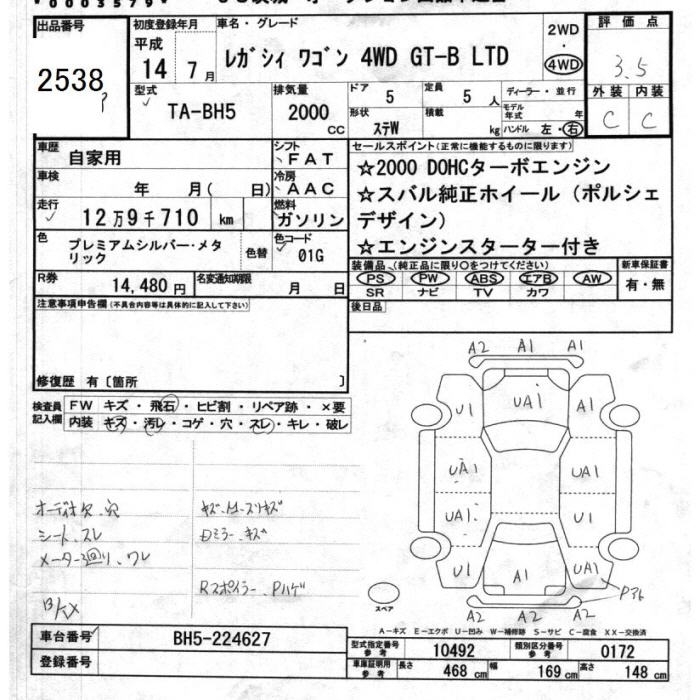 出品番号 初度登録年月 車名・グレード 2WD 評価点
2538 平成 14年 7月 レガシィ ワゴン 4WD GT-B LTD ・ 4WD 3.5
型式 排気量 ドア 定員 ディーラー・並行 外装 内装
TA-BH5 2000 CC 5 5 人 モデル年式 年 C C
形状 ステW 積載 kg ハンドル 左・右
車歴 自家用 シフト FAT セールスポイント(正常に機能するものに限ります)
車検 年 月( 日) 冷房 AAC ☆2000 DOHCターボエンジン
走行 12万9千710 km 燃料 ガソリン ☆スバル純正ホイール(ポルシェ
デザイン)
☆エンジンスターター付き
色 プレミアムシルバー・メタ
リック 色替 色コード 01G
装備品(純正品に限り○をつけてください) 新車保証書
R券 14,480円 名変通知期限 月 日 PS PW ABS エアB AW 有・無
SR ナビ TV カワ
注意事項申告欄(不具合内容等は具体的に記入して下さい) 後日品
修復歴 有〔箇所 〕
検査員記入欄 FW キズ・飛石・ヒビ割・リペア跡・×要
内装 キズ・汚レ・コゲ・穴・スレ・キレ・破レ
A2 A1 A1
U1 UA1 A1
UA1 UA1
UA1 U1
U1 A1 UA1
A2 A2 A2
オーディオ欠、穴
シート、スレ
Rスポイラー、Pハゲ
スペア
A-キズ E-エクボ U-凹み W-補修跡 S-サビ C-腐食 XX-交換済
車台番号 BH5-224627 型式指定番号 参考 10492 類別区分番号 参考 0172
登録番号 車庫証明用 参考 長さ 468 cm 幅 169 cm 高さ 148 cm